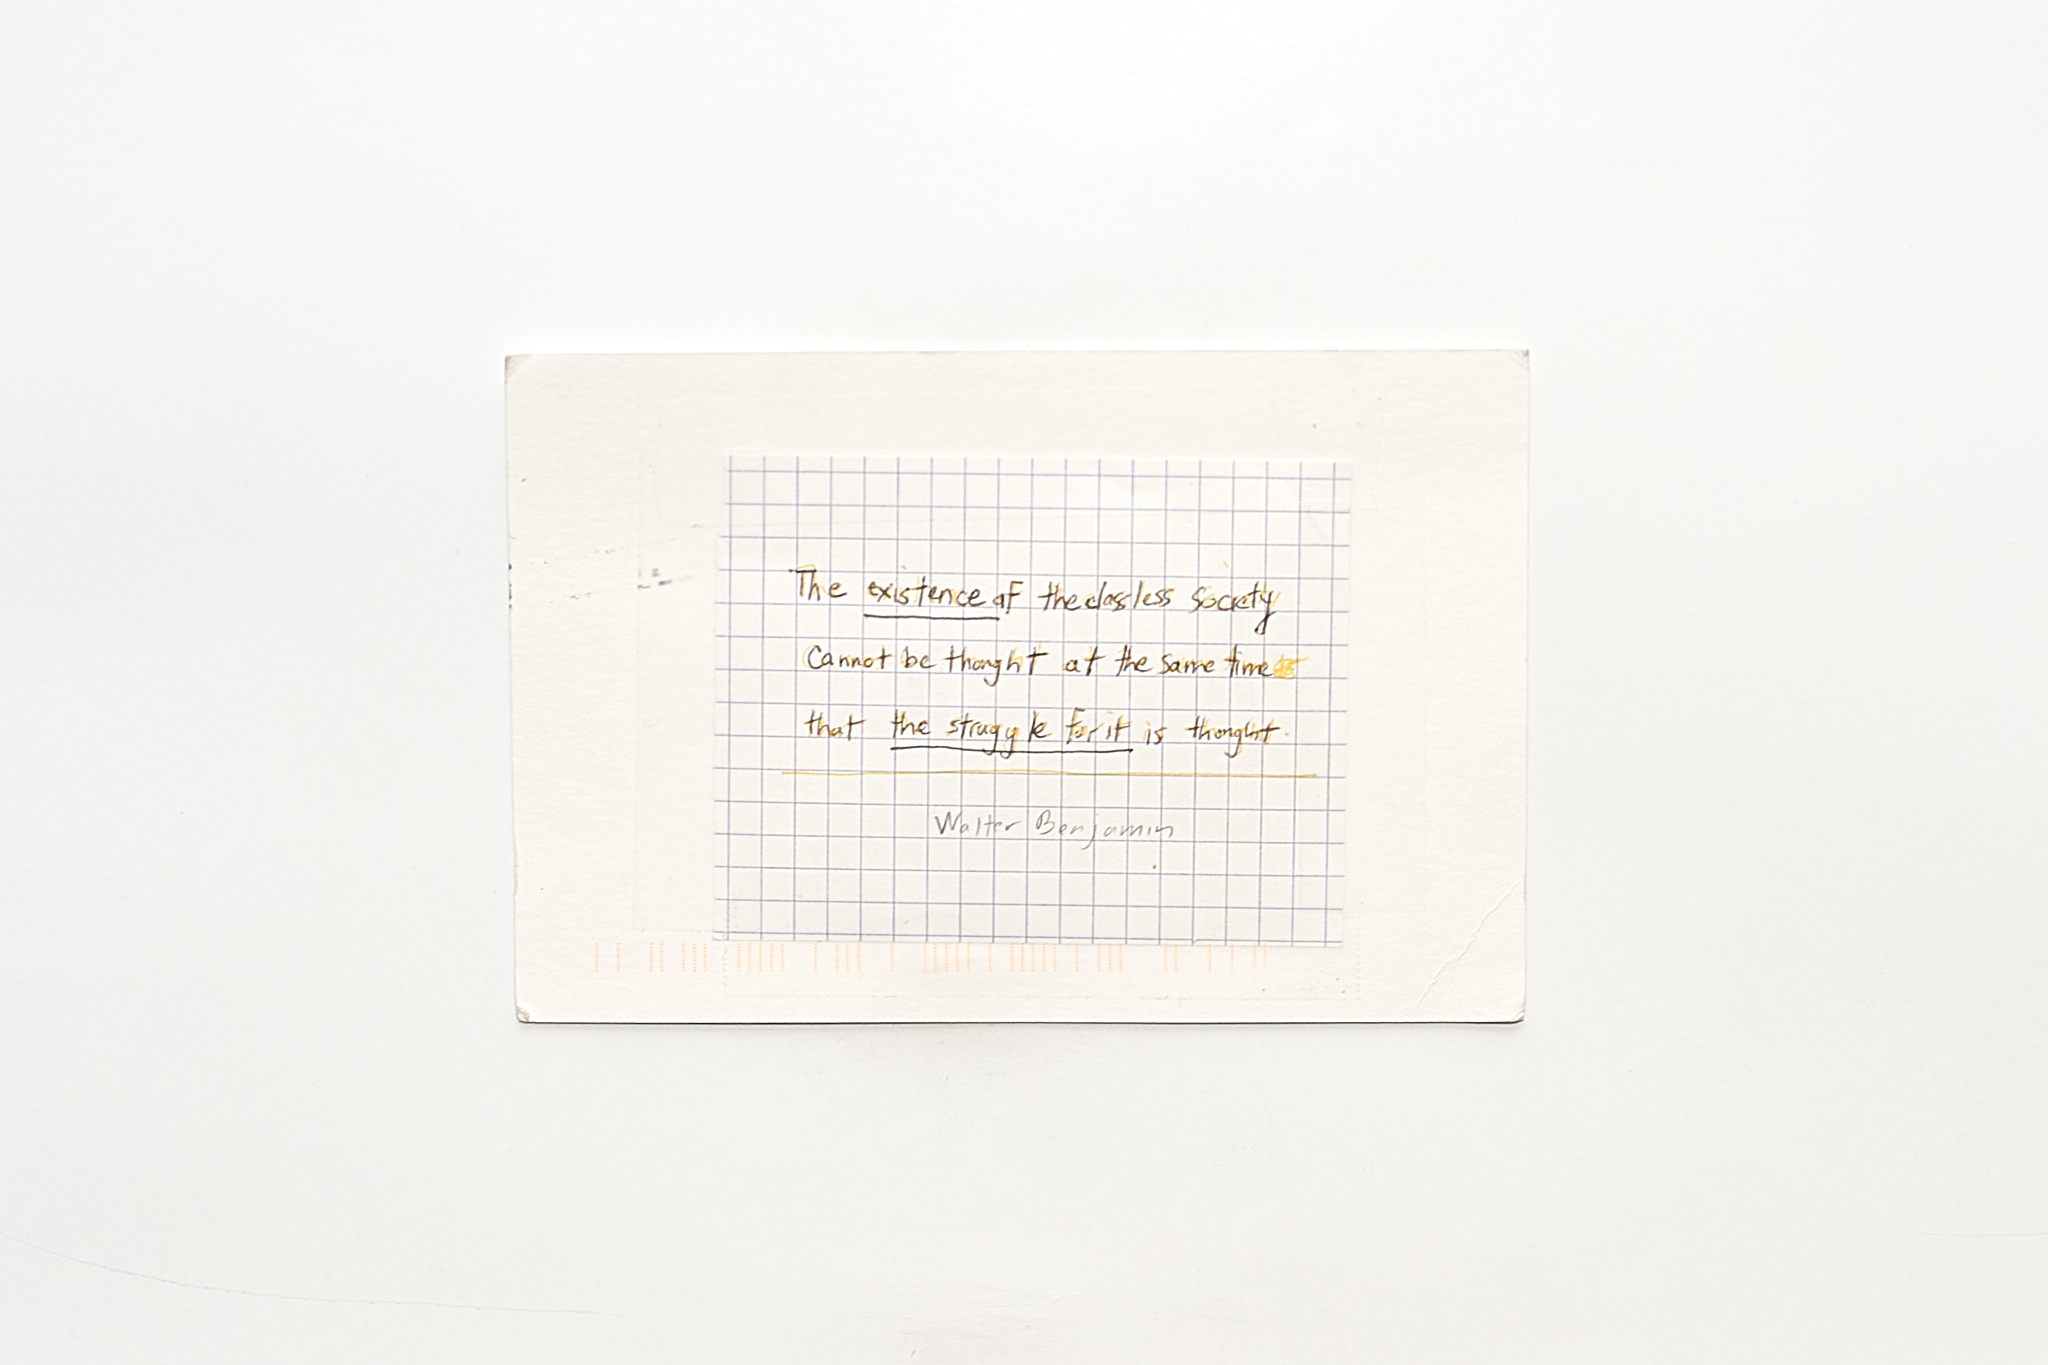 The existence of the classless society
Cannot be thought at the same time
that the struggle for it is thought.
Walter Benjamin